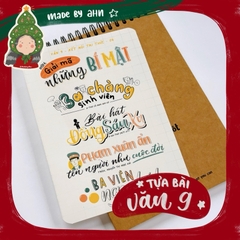 MADE BY AHN
Giải mã
những BÍ MẬT
3 chàng
sinh viên
Bài hát
Dòng Sầu
PHẠM XUÂN ẨN
tên người như cuộc đời
BA VIÊN
TỰA BÀI
Văn 9